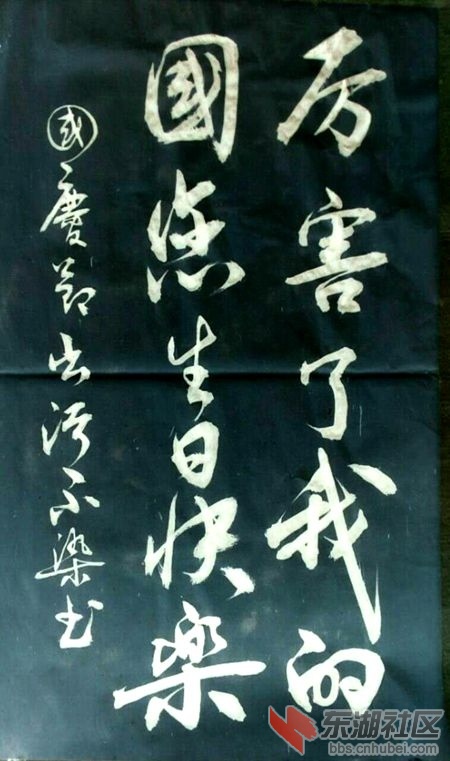 厉害了我的
國您生日快樂
國慶節出污不染书
东湖社区
bbs.cnhubei.com